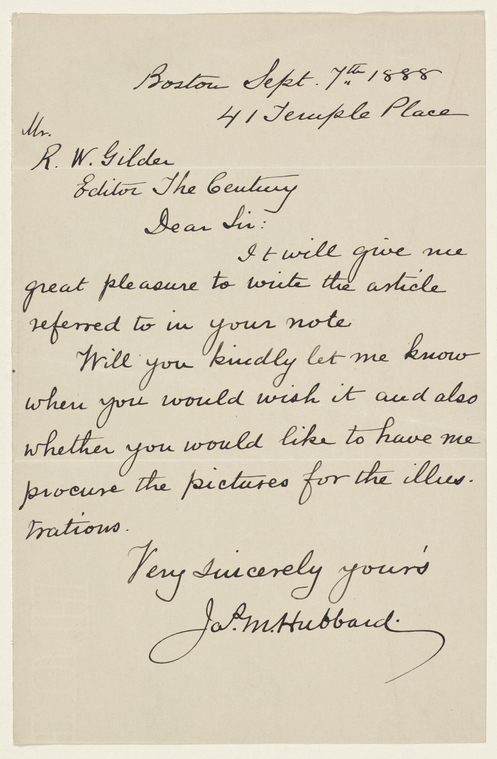 Boston Sept. 7th 1888
41 Temple Place
Mr.
R. W. Gilder
Editor The Century
Dear Sir:
It will give me
great pleasure to write the article
referred to in your note
Will you kindly let me know
when you would wish it and also
whether you would like to have me
procure the pictures for the illus-
trations.
Very sincerely yours
Jas. M. Hubbard.